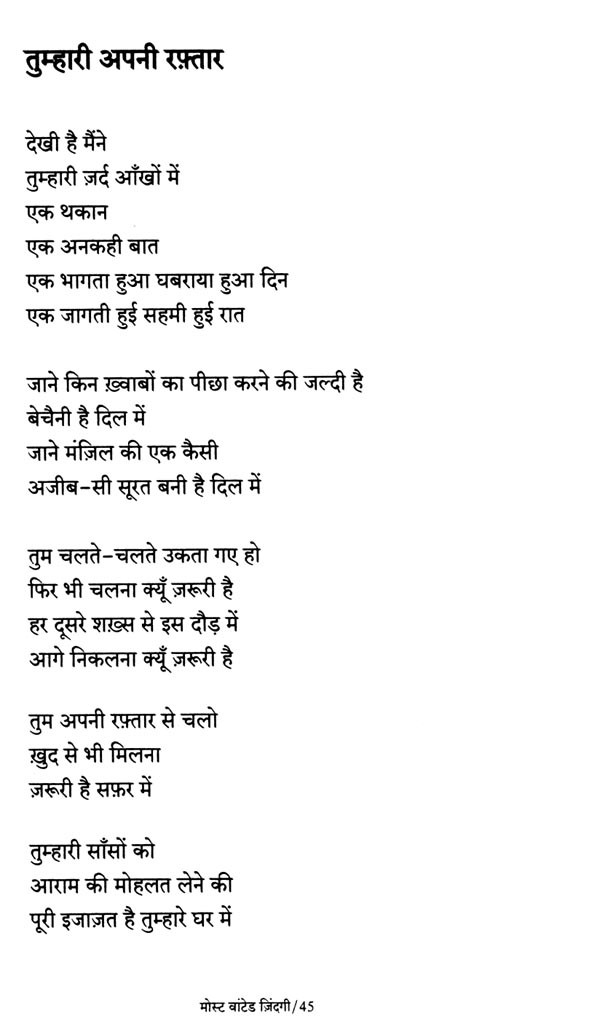 तुम्हारी अपनी रफ़्तार
देखी है मैंने
तुम्हारी ज़र्द आँखों में
एक थकान
एक अनकही बात
एक भागता हुआ घबराया हुआ दिन
एक जागती हुई सहमी हुई रात
जाने किन ख़्वाबों का पीछा करने की जल्दी है
बेचैनी है दिल में
जाने मंज़िल की एक कैसी
अजीब-सी सूरत बनी है दिल में
तुम चलते-चलते उकता गए हो
फिर भी चलना क्यूँ ज़रूरी है
हर दूसरे शख़्स से इस दौड़ में
आगे निकलना क्यूँ ज़रूरी है
तुम अपनी रफ़्तार से चलो
ख़ुद से भी मिलना
ज़रूरी है सफ़र में
तुम्हारी साँसों को
आराम की मोहलत लेने की
पूरी इजाज़त है तुम्हारे घर में
मोस्ट वांटेड ज़िंदगी/45